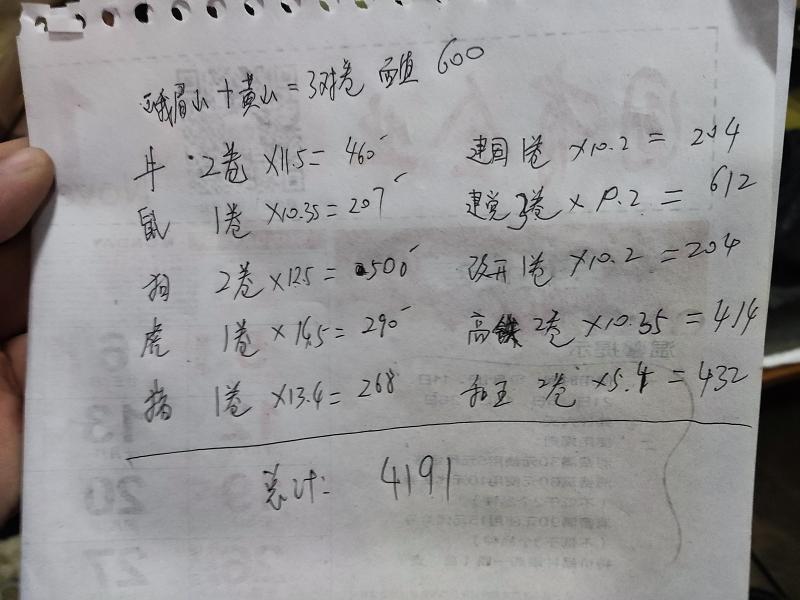 峨眉山+黄山=3对卷 面值 600
牛 2卷 ×11.5=460 建国1卷 ×10.2=204
鼠 1卷 ×10.35=207 建党3卷×10.2=612
狗 2卷×12.5=500 改开1卷×10.2=204
虎 1卷×14.5=290 高铁2卷×10.35=414
猪 1卷×13.4=268 和王 2卷×5.4=432
总计: 4191